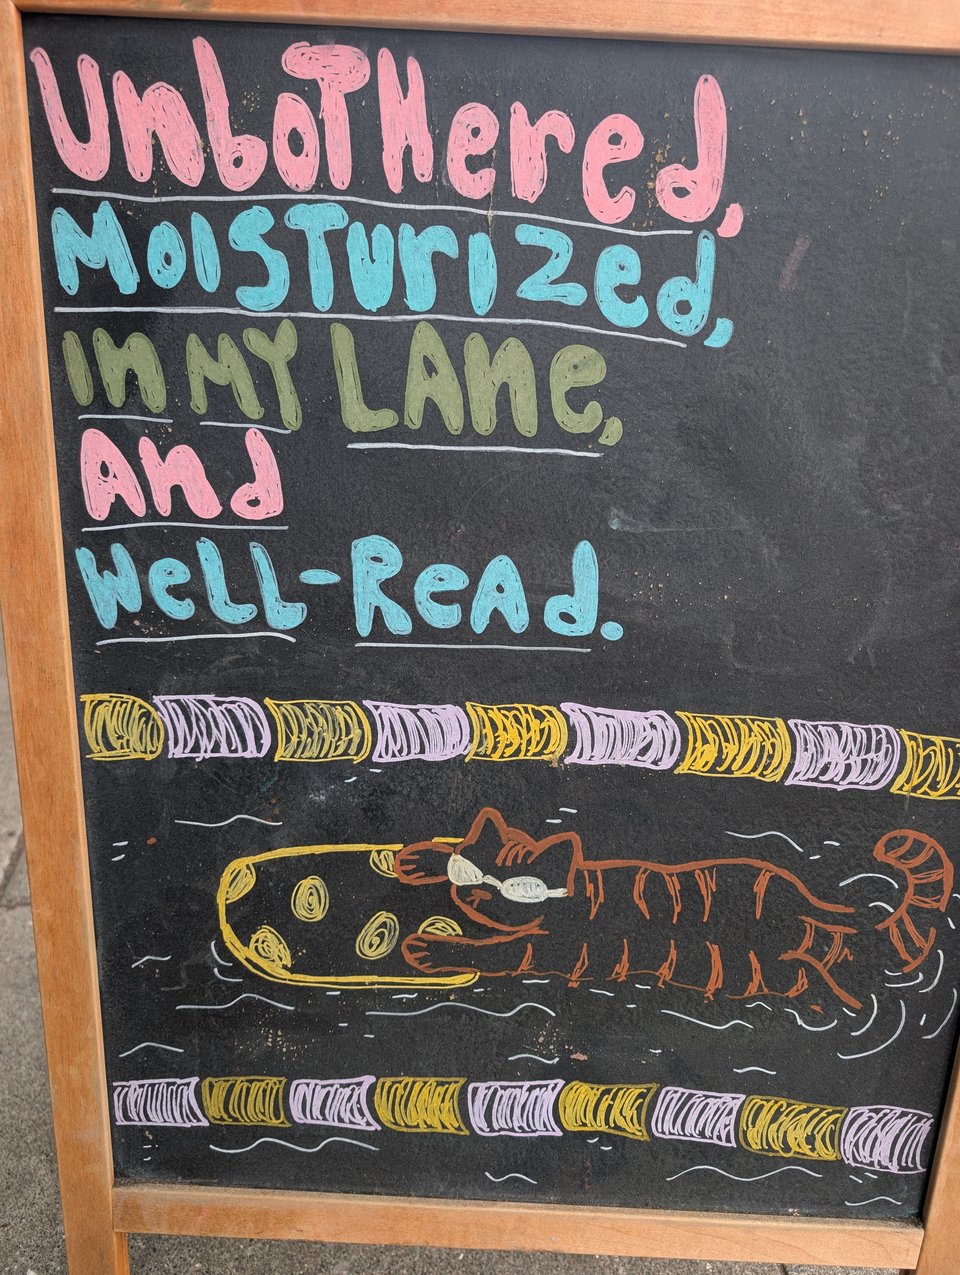 Unbothered,
Moisturized,
In My Lane,
And
Well-Read.